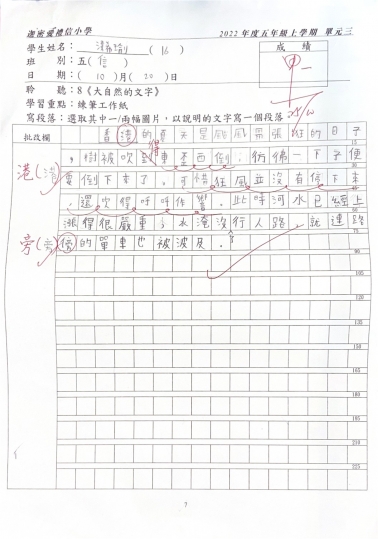 迦密愛禮信小學 2022年度五年級上學期 單元三
學生姓名： (16) 成績
班別：五(信) 甲一
日期：(10)月(20)日
聆聽：8《大自然的文字》
學習重點：練筆工作紙
寫段落：選取其中一/兩幅圖片，以說明的文字寫一個段落
批改欄 香港的夏天是颱風需張狂的日子
15
，樹被吹得東歪西倒，彷彿一下子便
港
要倒下來了。可惜狂風並沒有停下來
，還吹得呼呼作響。此時河水已經上
漲得很嚴重，水淹沒行人路，就連路
75
旁(旁) 旁的單車也被波及。
90
105
120
135
150
165
180
195
210
225
7